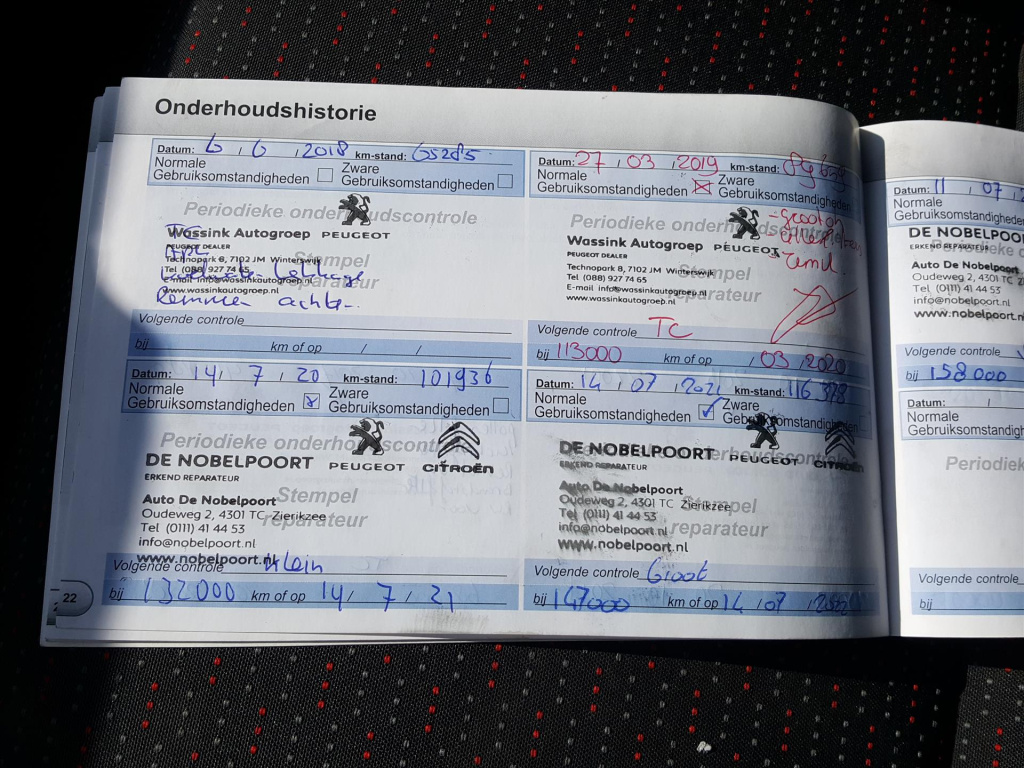 Onderhoudshistorie
Datum: 6 / 6 / 2018 km-stand: 65285
Normale Gebruiksomstandigheden
Zware Gebruiksomstandigheden
Periodieke onderhoudscontrole
Wassink Autogroep PEUGEOT
PEUGEOT DEALER
Technopark 6, 7102 JM Winterswijk
Tel (088) 927 74 65
E-mail info@wassinkautogroep.nl
www.wassinkautogroep.nl
Stempel
reparateur
Remmen achter
Volgende controle
bij km of op / /
Datum: 27 / 03 / 2019 km-stand:
Normale Gebruiksomstandigheden
Zware Gebruiksomstandigheden
Periodieke
Wassink Autogroep PEUGEOT
PEUGEOT DEALER
Technopark 6, 7102 JM Winterswijk
Tel (088) 927 74 65
E-mail info@wassinkautogroep.nl
www.wassinkautogroep.nl
Stempel
reparateur
Volgende controle TC
bij 113000 km of op / 03 / 2020
Datum: 14 / 7 / 20 km-stand: 101936
Normale Gebruiksomstandigheden
Zware Gebruiksomstandigheden
Periodieke onderhoudscontrole
DE NOBELPOORT PEUGEOT CITROËN
ERKEND REPARATEUR
Auto De Nobelpoort
Oudeweg 2, 4301 TC Zierikzee
Tel (0111) 41 44 53
info@nobelpoort.nl
www.nobelpoort.nl
Stempel
reparateur
Volgende controle Klein
bij 132000 km of op 14 / 7 / 21
Datum: 14 / 07 / 2021 km-stand: 116378
Normale Gebruiksomstandigheden
Zware Gebruiksomstandigheden
DE NOBELPOORT PEUGEOT CITROËN
ERKEND REPARATEUR
Auto De Nobelpoort
Oudeweg 2, 4301 TC Zierikzee
Tel (0111) 41 44 53
info@nobelpoort.nl
www.nobelpoort.nl
Stempel
reparateur
Volgende controle Groot
bij 147000 km of op 14 / 07 / 2022
22
Datum: 11 / 07 /
Normale
Gebruiksomstandigheden
DE NOBELPOO
ERKEND REPARATEUR
Auto De Nobelpoort
Oudeweg 2, 4301 TC
Tel (0111) 41 44 5
info@nobelpoort.nl
www.nobelpoort
Volgende controle
bij 158000
Datum: /
Normale
Gebruiksomstandigh
Periodiek
Volgende controle
bij